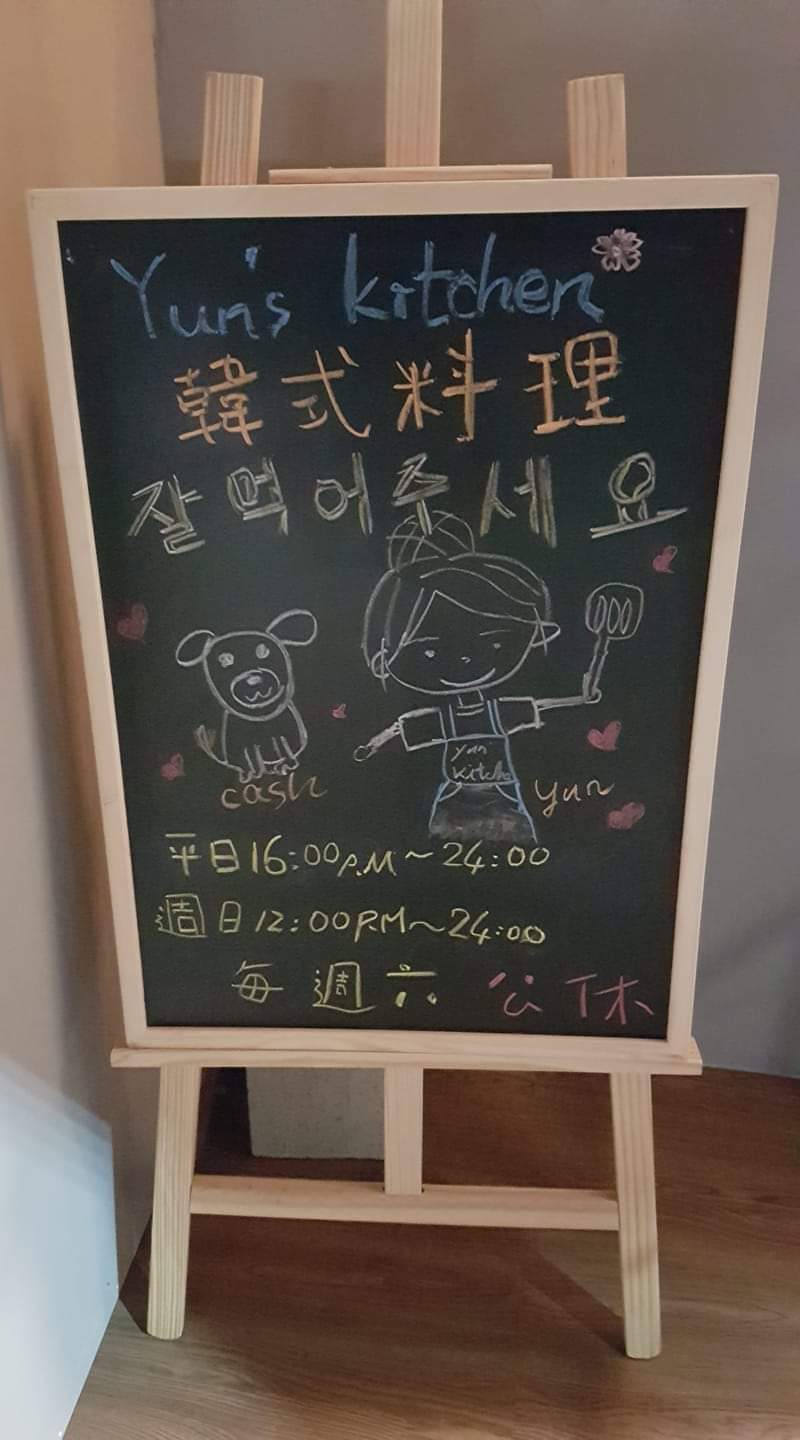 Yun's kitchen
韓式料理
잘먹어주세요
yun
kitchen
cash
yun
平日16:00P.M~24:00
週日12:00P.M~24:00
每週六 公休